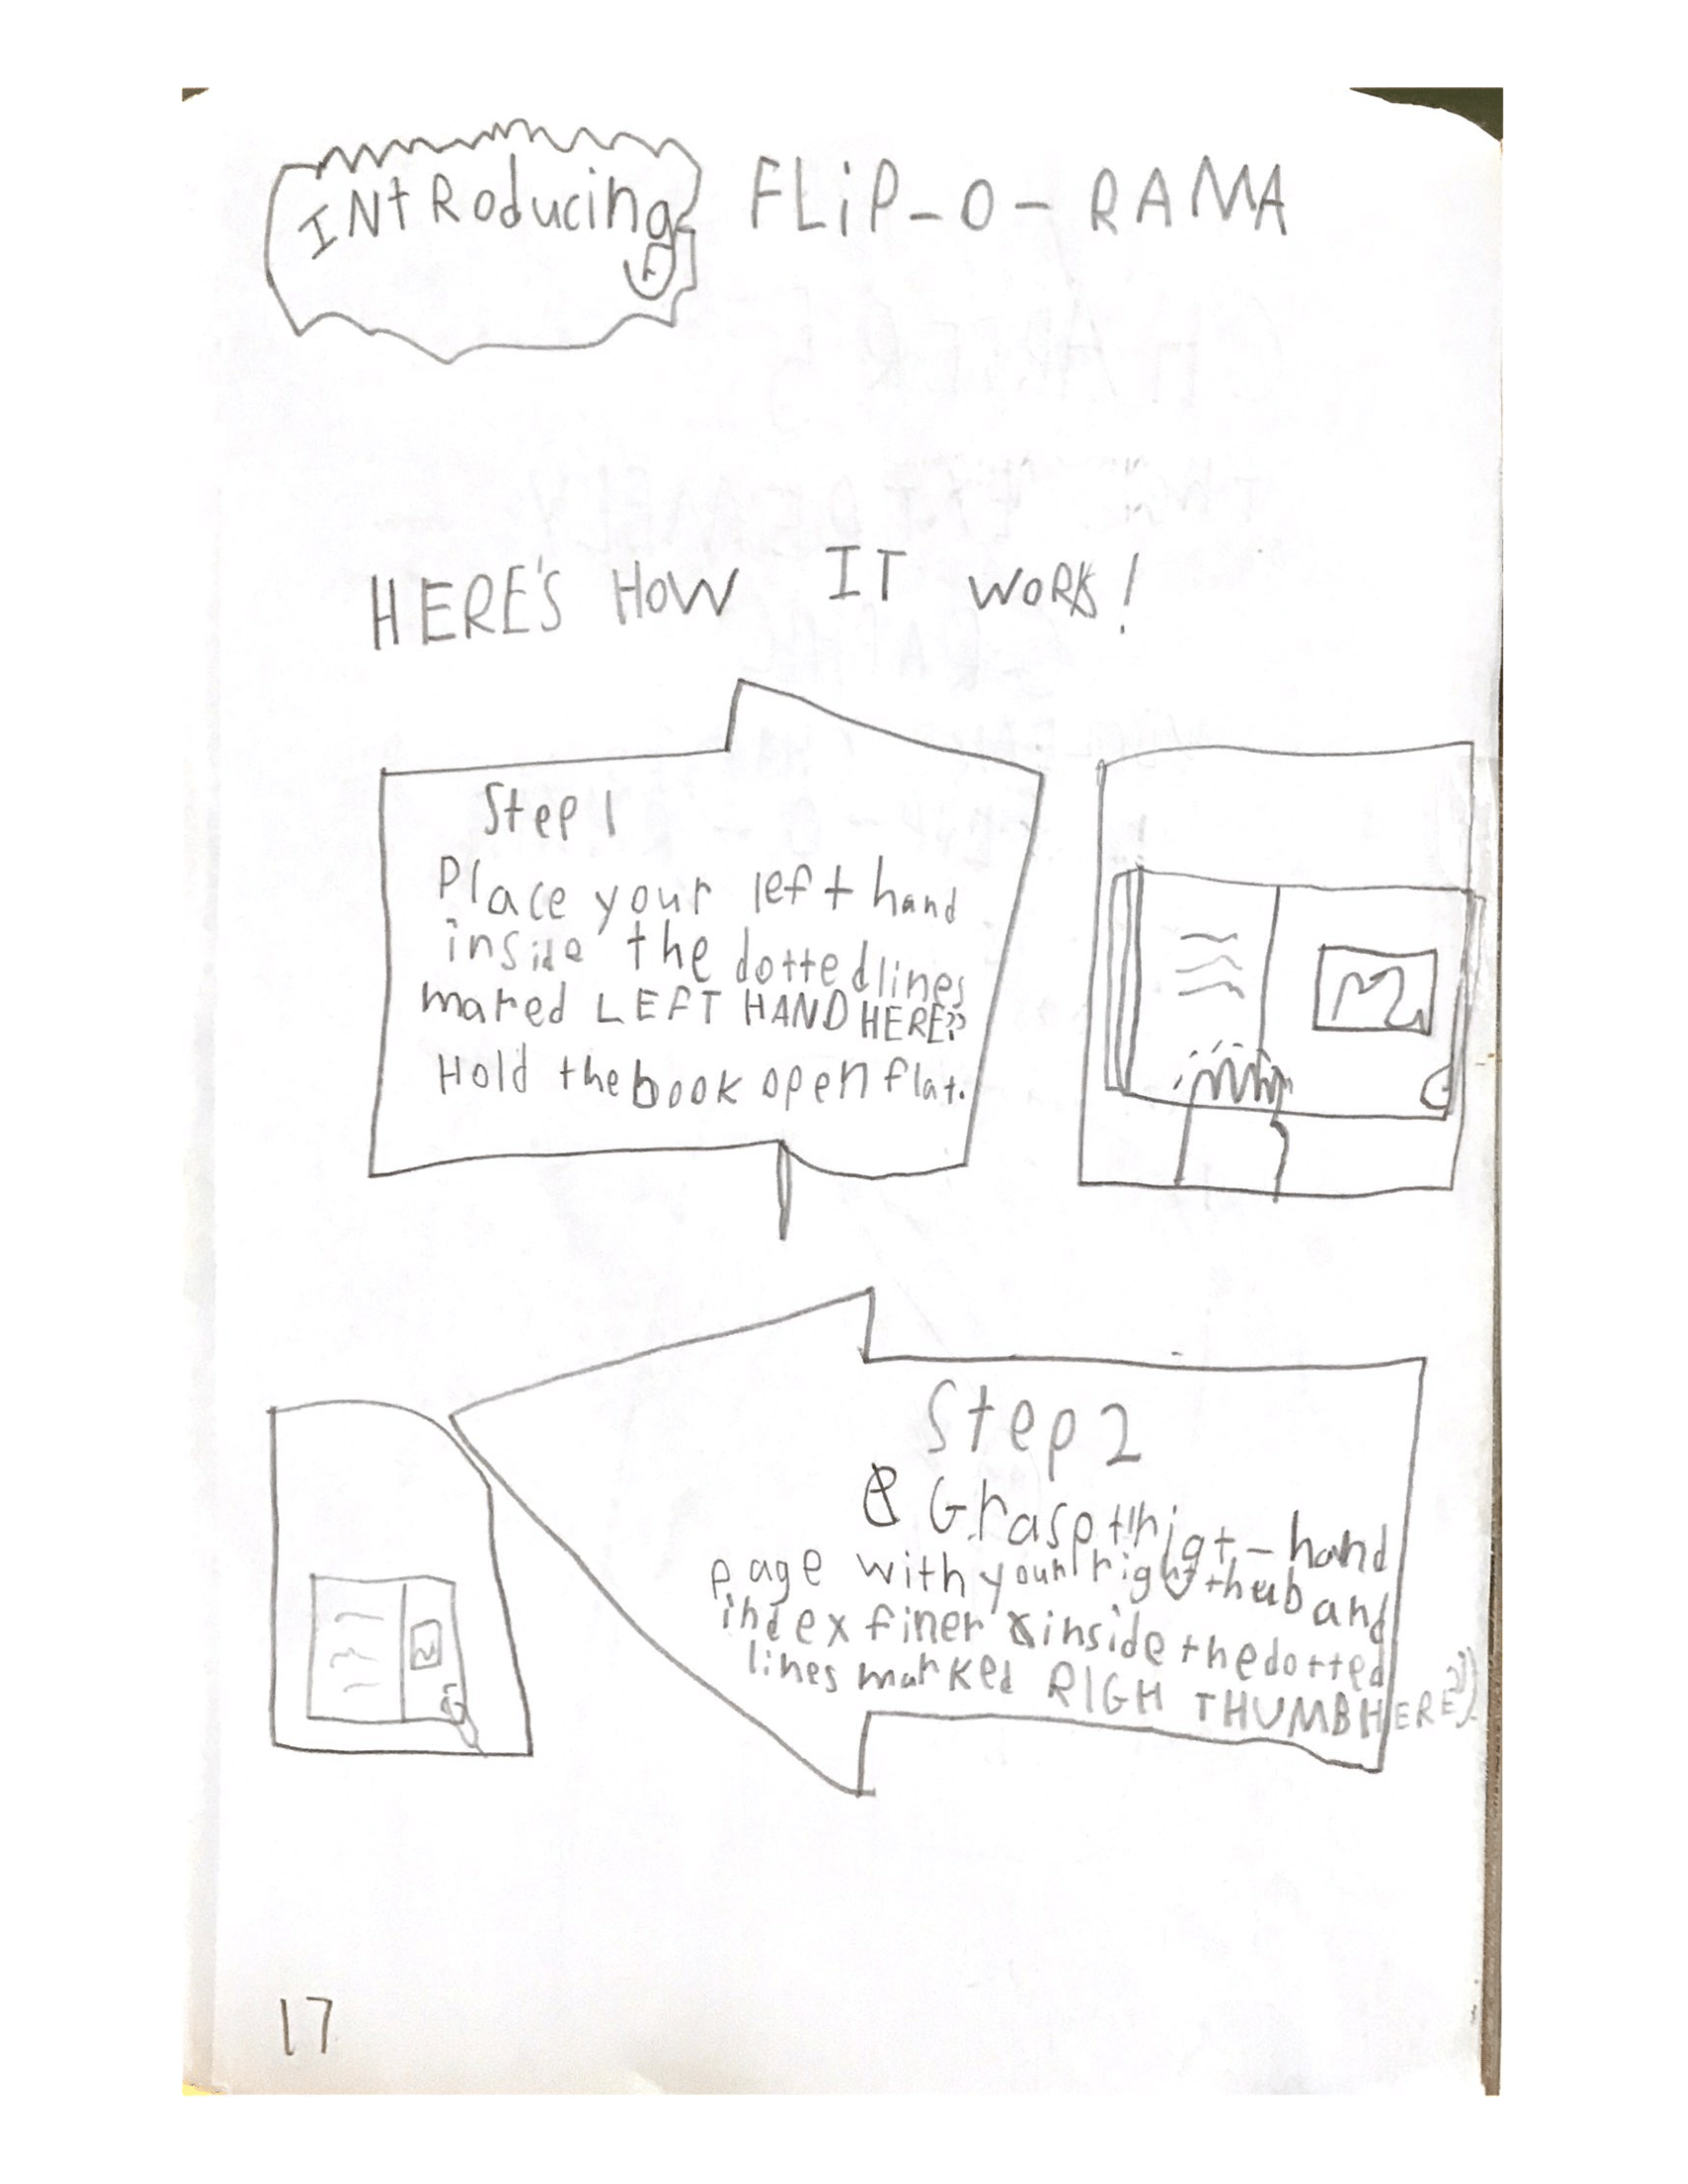 INtRoducing FLiP-O-RAMA
HERE'S HOW IT WORKS!
Step 1
Place your left hand
inside the dotted lines
mared LEFT HAND HERE"
Hold the book open flat.
Step 2
Grasp th rigt-hand
page with your right thub and
index finer inside the dotted
lines marked RIGH THUMB HERE"
17